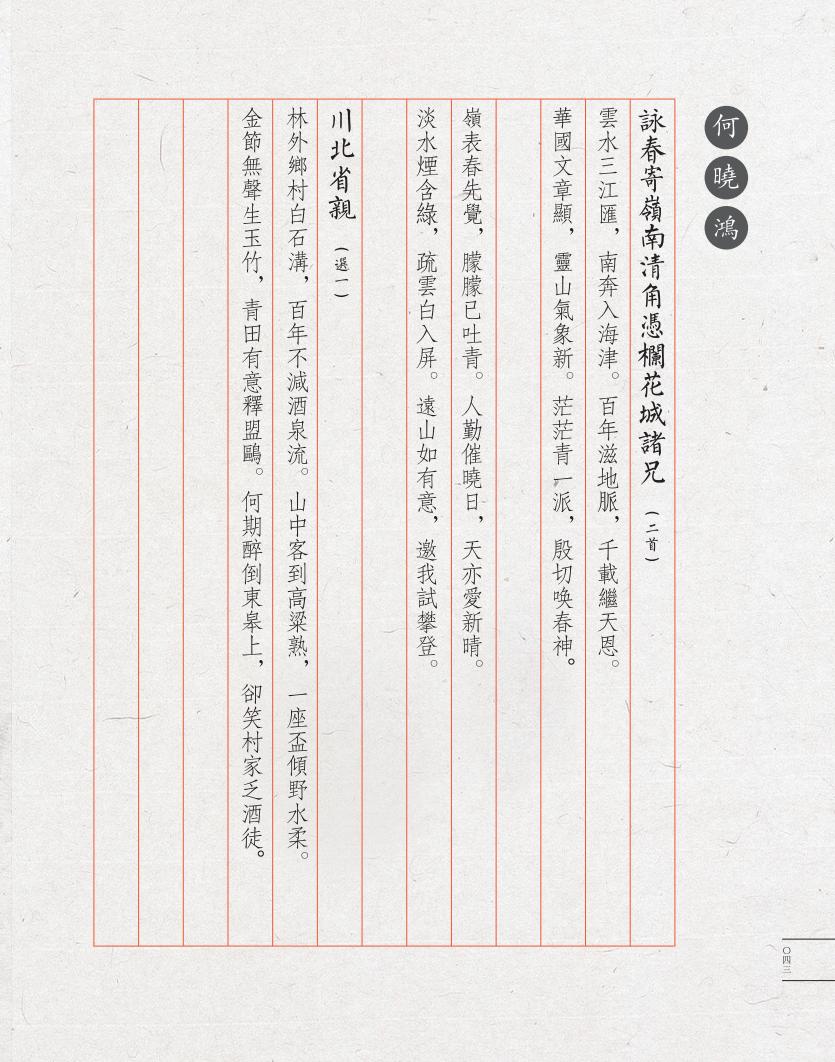 何曉鴻
詠春寄嶺南清角憑欄花城諸兄（二首）
雲水三江匯，南奔入海津。百年滋地脈，千載繼天恩。
華國文章顯，靈山氣象新。茫茫青一派，殷切喚春神。
嶺表春先覺，朦朦已吐青。人勤催曉日，天亦愛新晴。
淡水煙含綠，疏雲白入屏。遠山如有意，邀我試攀登。
川北省親（選一）
林外鄉村白石溝，百年不減酒泉流。山中客到高粱熟，一座盃傾野水柔。
金節無聲生玉竹，青田有意釋盟鷗。何期醉倒東皋上，卻笑村家乏酒徒。
〇四三